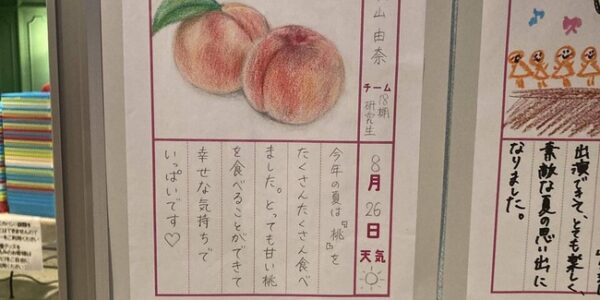 出演できて、とても楽しく、
素敵な夏の思い出に
なりました。
山由奈
チーム
18期
研究生
8月26日
天気
今年の夏は『桃』を
たくさんたくさん食べ
ました。とっても甘い桃
を食べることができて
幸せな気持ちで
いっぱいです♡